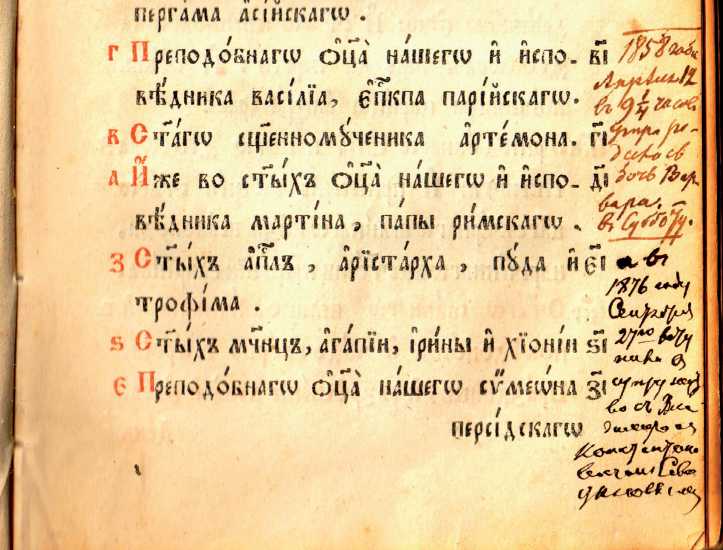 перга́ма а҆сі́йскагѡ .
г Преподо́бнагѡ ѻ҆ц҃а̀ на́шегѡ и҆ и҆спо- в҃і
вѣ́дника васі́лїа, є҆п҃кпа парі́йскагѡ.
в Ст҃а́гѡ сщ҃енному́ченика а҆ртє́мона. г҃і
а И҆́же во ст҃ы́хъ ѻ҆ц҃а̀ на́шегѡ и҆ и҆спо- д҃і
вѣ́дника марті́на, па́пы ри́мскагѡ .
з Ст҃ы́хъ а҆п҃лъ , а҆рїста́рха , пу́да и҆ є҃і
трофі́ма .
ѕ Ст҃ы́хъ мч҃нцъ, а҆га́пїи, і҆ри́ны и҆ хїо́нїи ѕ҃і
є Преподо́бнагѡ ѻ҆ц҃а̀ на́шегѡ сѷмеѡ́на з҃і
персі́дскагѡ
1858 года
Апрѣля 12
въ 9 1/4 часов
утра ро-
дилась
дочь Вар
вара.
въ Субботу.
а въ
1876 году
Сентября
27го
супруж
во съ